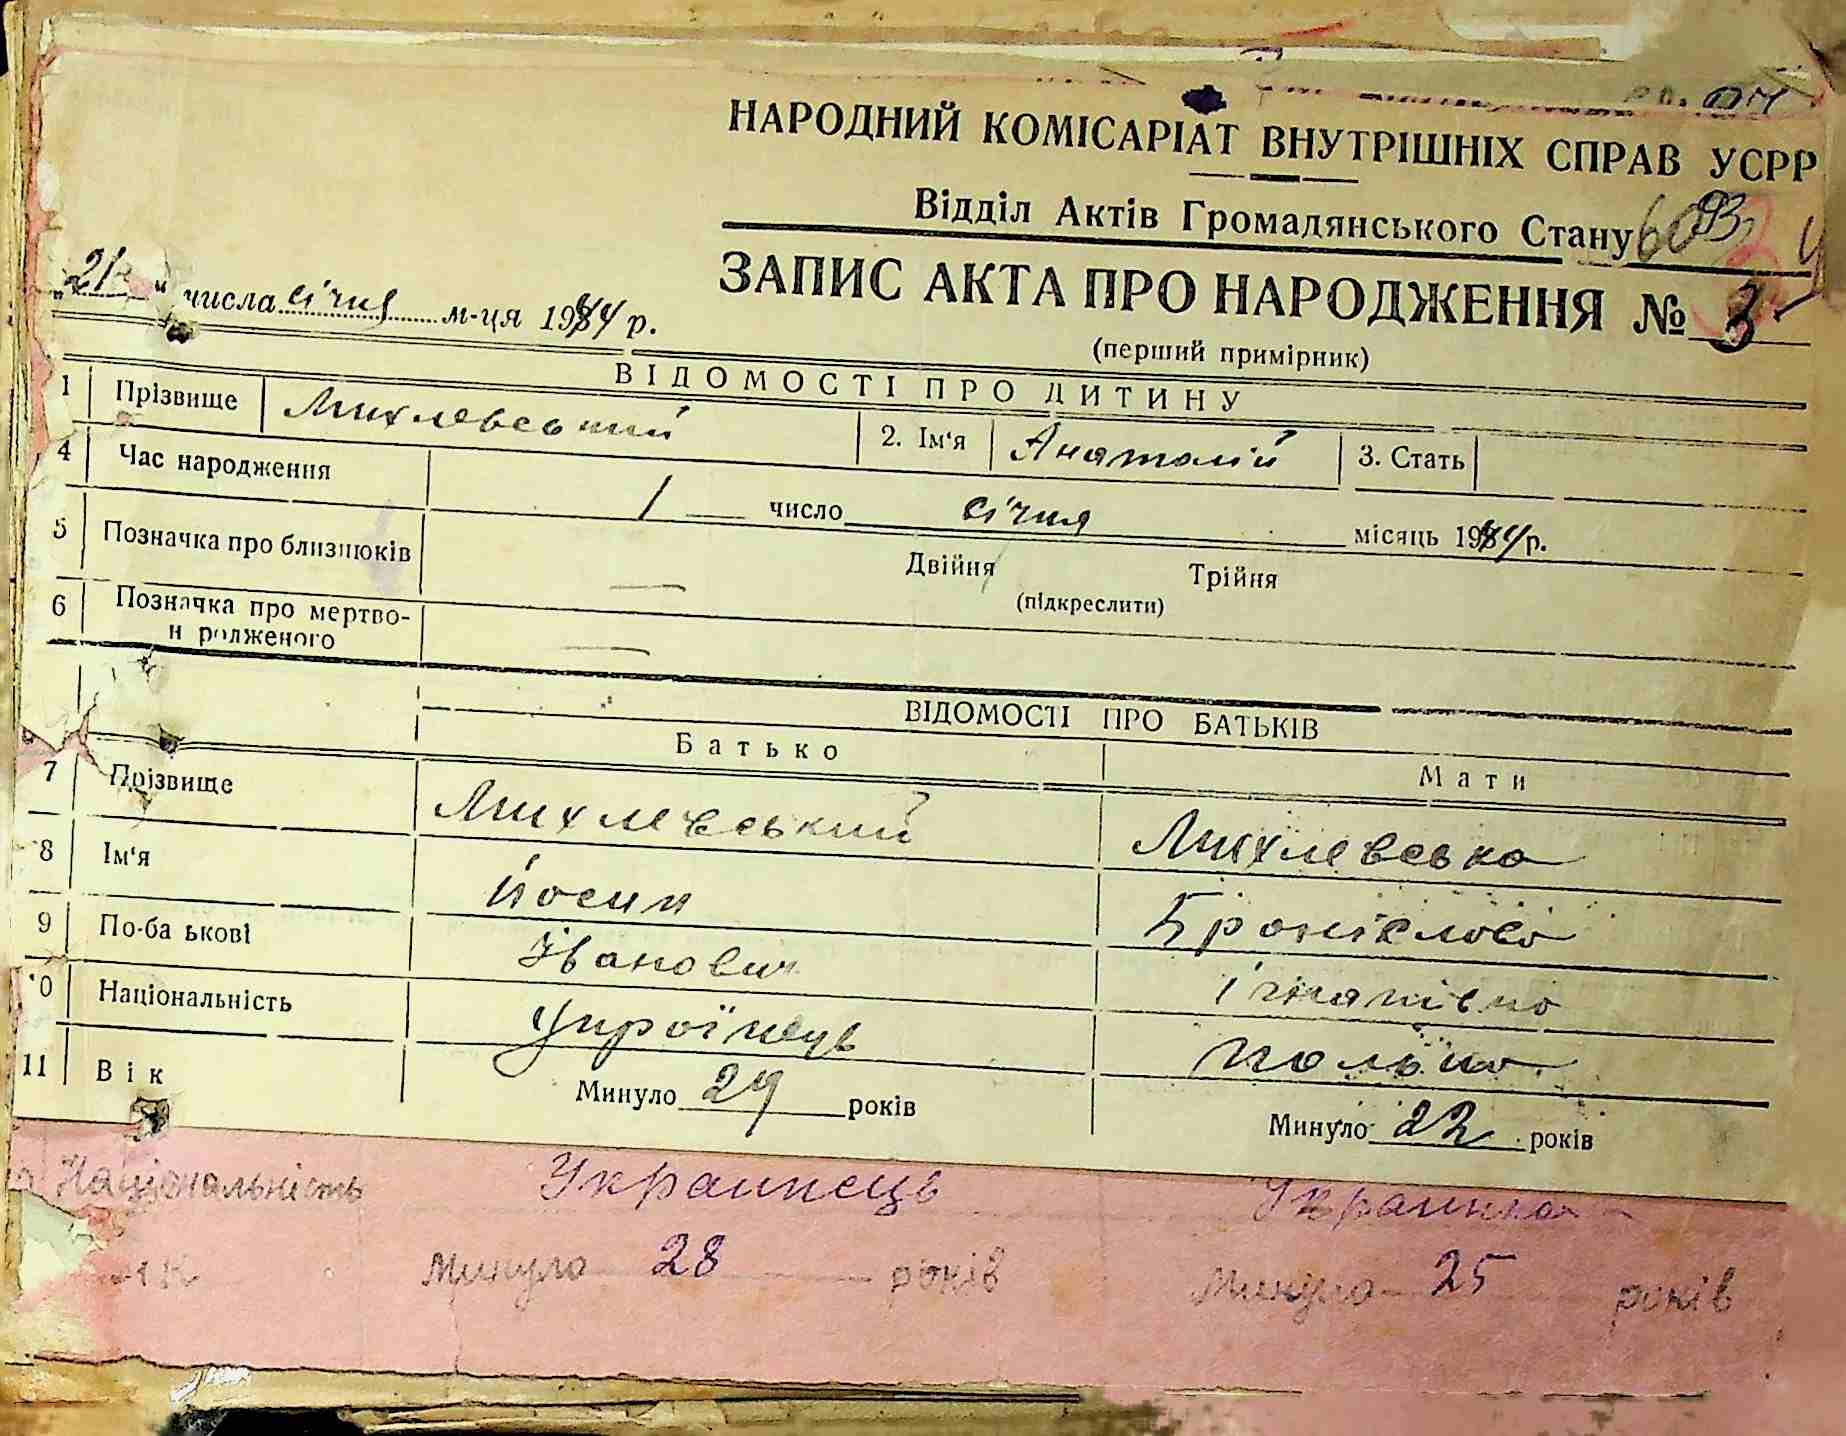 НАРОДНИЙ КОМІСАРІАТ ВНУТРІШНІХ СПРАВ УСРР
Відділ Актів Громадянського Стану
ЗАПИС АКТА ПРО НАРОДЖЕННЯ № 3
„21“ числа січня м-ця 1944 р.
(перший примірник)
ВІДОМОСТІ ПРО ДИТИНУ
1 Прізвище Михлевський 2. Ім'я Анатолій 3. Стать
4 Час народження 1 число січня місяць 1944 р.
5 Позначка про близнюків — Двійня Трійня
(підкреслити)
6 Позначка про мертво-
н родженого —
ВІДОМОСТІ ПРО БАТЬКІВ
Батько Мати
7 Прізвище Михлевський Михлевська
8 Ім'я Йосип Броніслава
9 По-ба ькові Іванович Ігнатівна
0 Національність Українець полька
11 Вік Минуло 29 років Минуло 22 років
Національність Украинець Украинка
ік Минуло 28 років Минуло 25 років